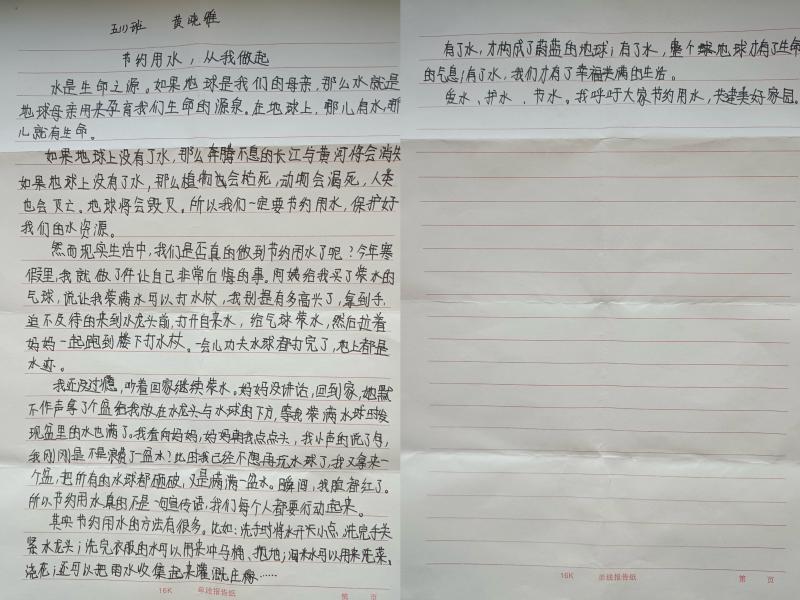 五(1)班 黄晓雅
节约用水，从我做起
水是生命之源。如果地球是我们的母亲，那么水就是
地球母亲用来孕育我们生命的源泉。在地球上，那儿有水，那
儿就有生命。
如果地球上没有了水，那么奔腾不息的长江与黄河将会消失
如果地球上没有了水，那么植物也会枯死，动物会渴死，人类
也会灭亡。地球将会毁灭。所以我们一定要节约用水，保护好
我们的水资源。
然而现实生活中，我们是否真的做到节约用水了呢？今年寒
假里，我就做了件让自己非常后悔的事。阿姨给我买了装水的
气球，说让我装满水可以打水仗，我别提有多高兴了，拿到手，
迫不及待的来到水龙头前，打开自来水，给气球装水，然后拉着
妈妈一起跑到楼下打水仗。一会儿功夫水球都打完了，地上都是
水迹。
我还没过瘾，吵着回家继续装水。妈妈没讲话，回到家，她默
不作声拿了个盆给我放在水龙头与水球的下方，等我装满水球时发
现盆里的水也满了。我看向妈妈，妈妈朝我点点头，我小声的说了句，
我刚刚是不是浪费了一盆水？此时我已经不想再玩水球了，我又拿来一
个盆，把所有的水球都砸破，又是满满一盆水。瞬间，我脸都红了。
所以节约用水真的不是一句宣传语，我们每个人都要行动起来。
其实节约用水的方法有很多。比如：洗手时将水开小点，洗完手关
紧水龙头；洗完衣服的水可以用来冲马桶、拖地；淘米水可以用来洗菜、
浇花；还可以把雨水收集起来灌溉庄稼……
16K 单线报告纸 第 页
有了水，才构成了蔚蓝的地球；有了水，整个地球才有了生命
的气息；有了水，我们才有了幸福美满的生活。
爱水、护水、节水。我呼吁大家节约用水，共建美好家园。
16K 单线报告纸 第 页